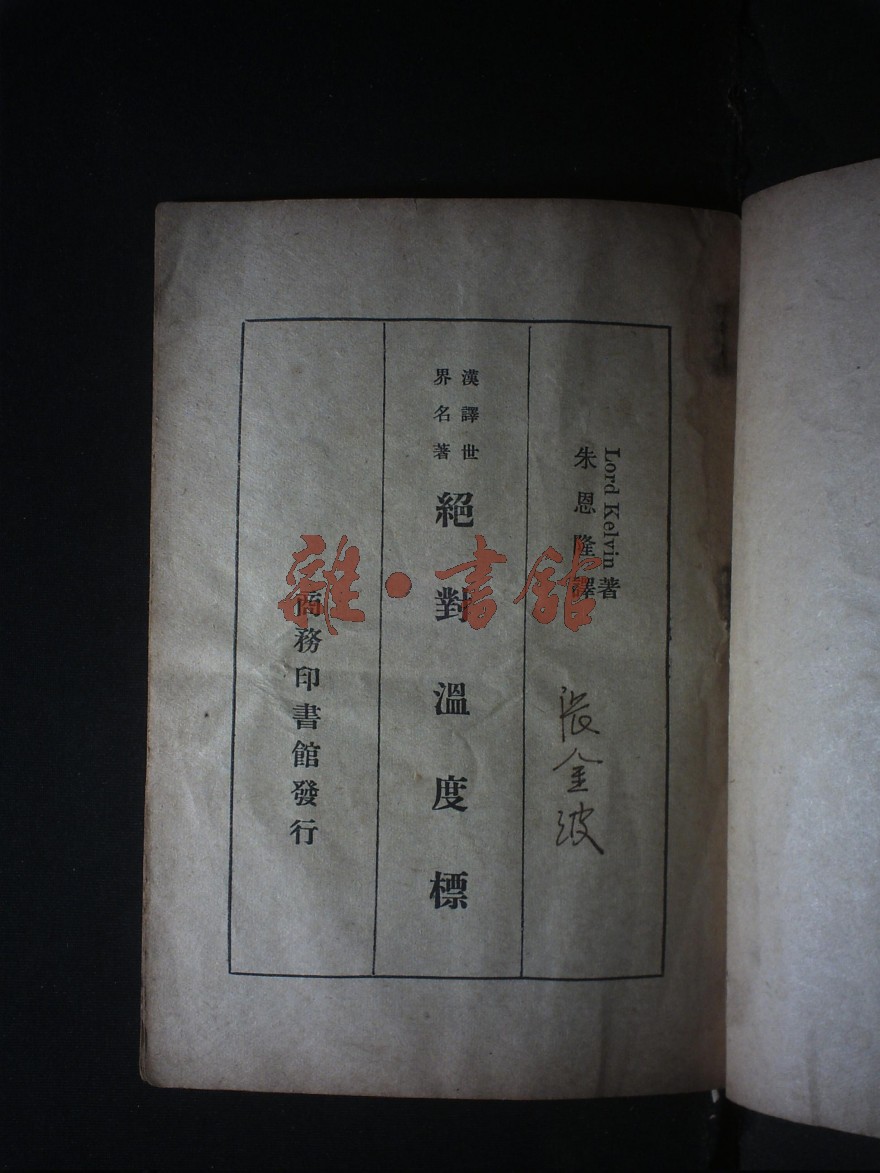 Lord Kelvin著
朱恩隆譯
張金波
漢譯世
界名著
絕對溫度標
商務印書館發行
雜·書館